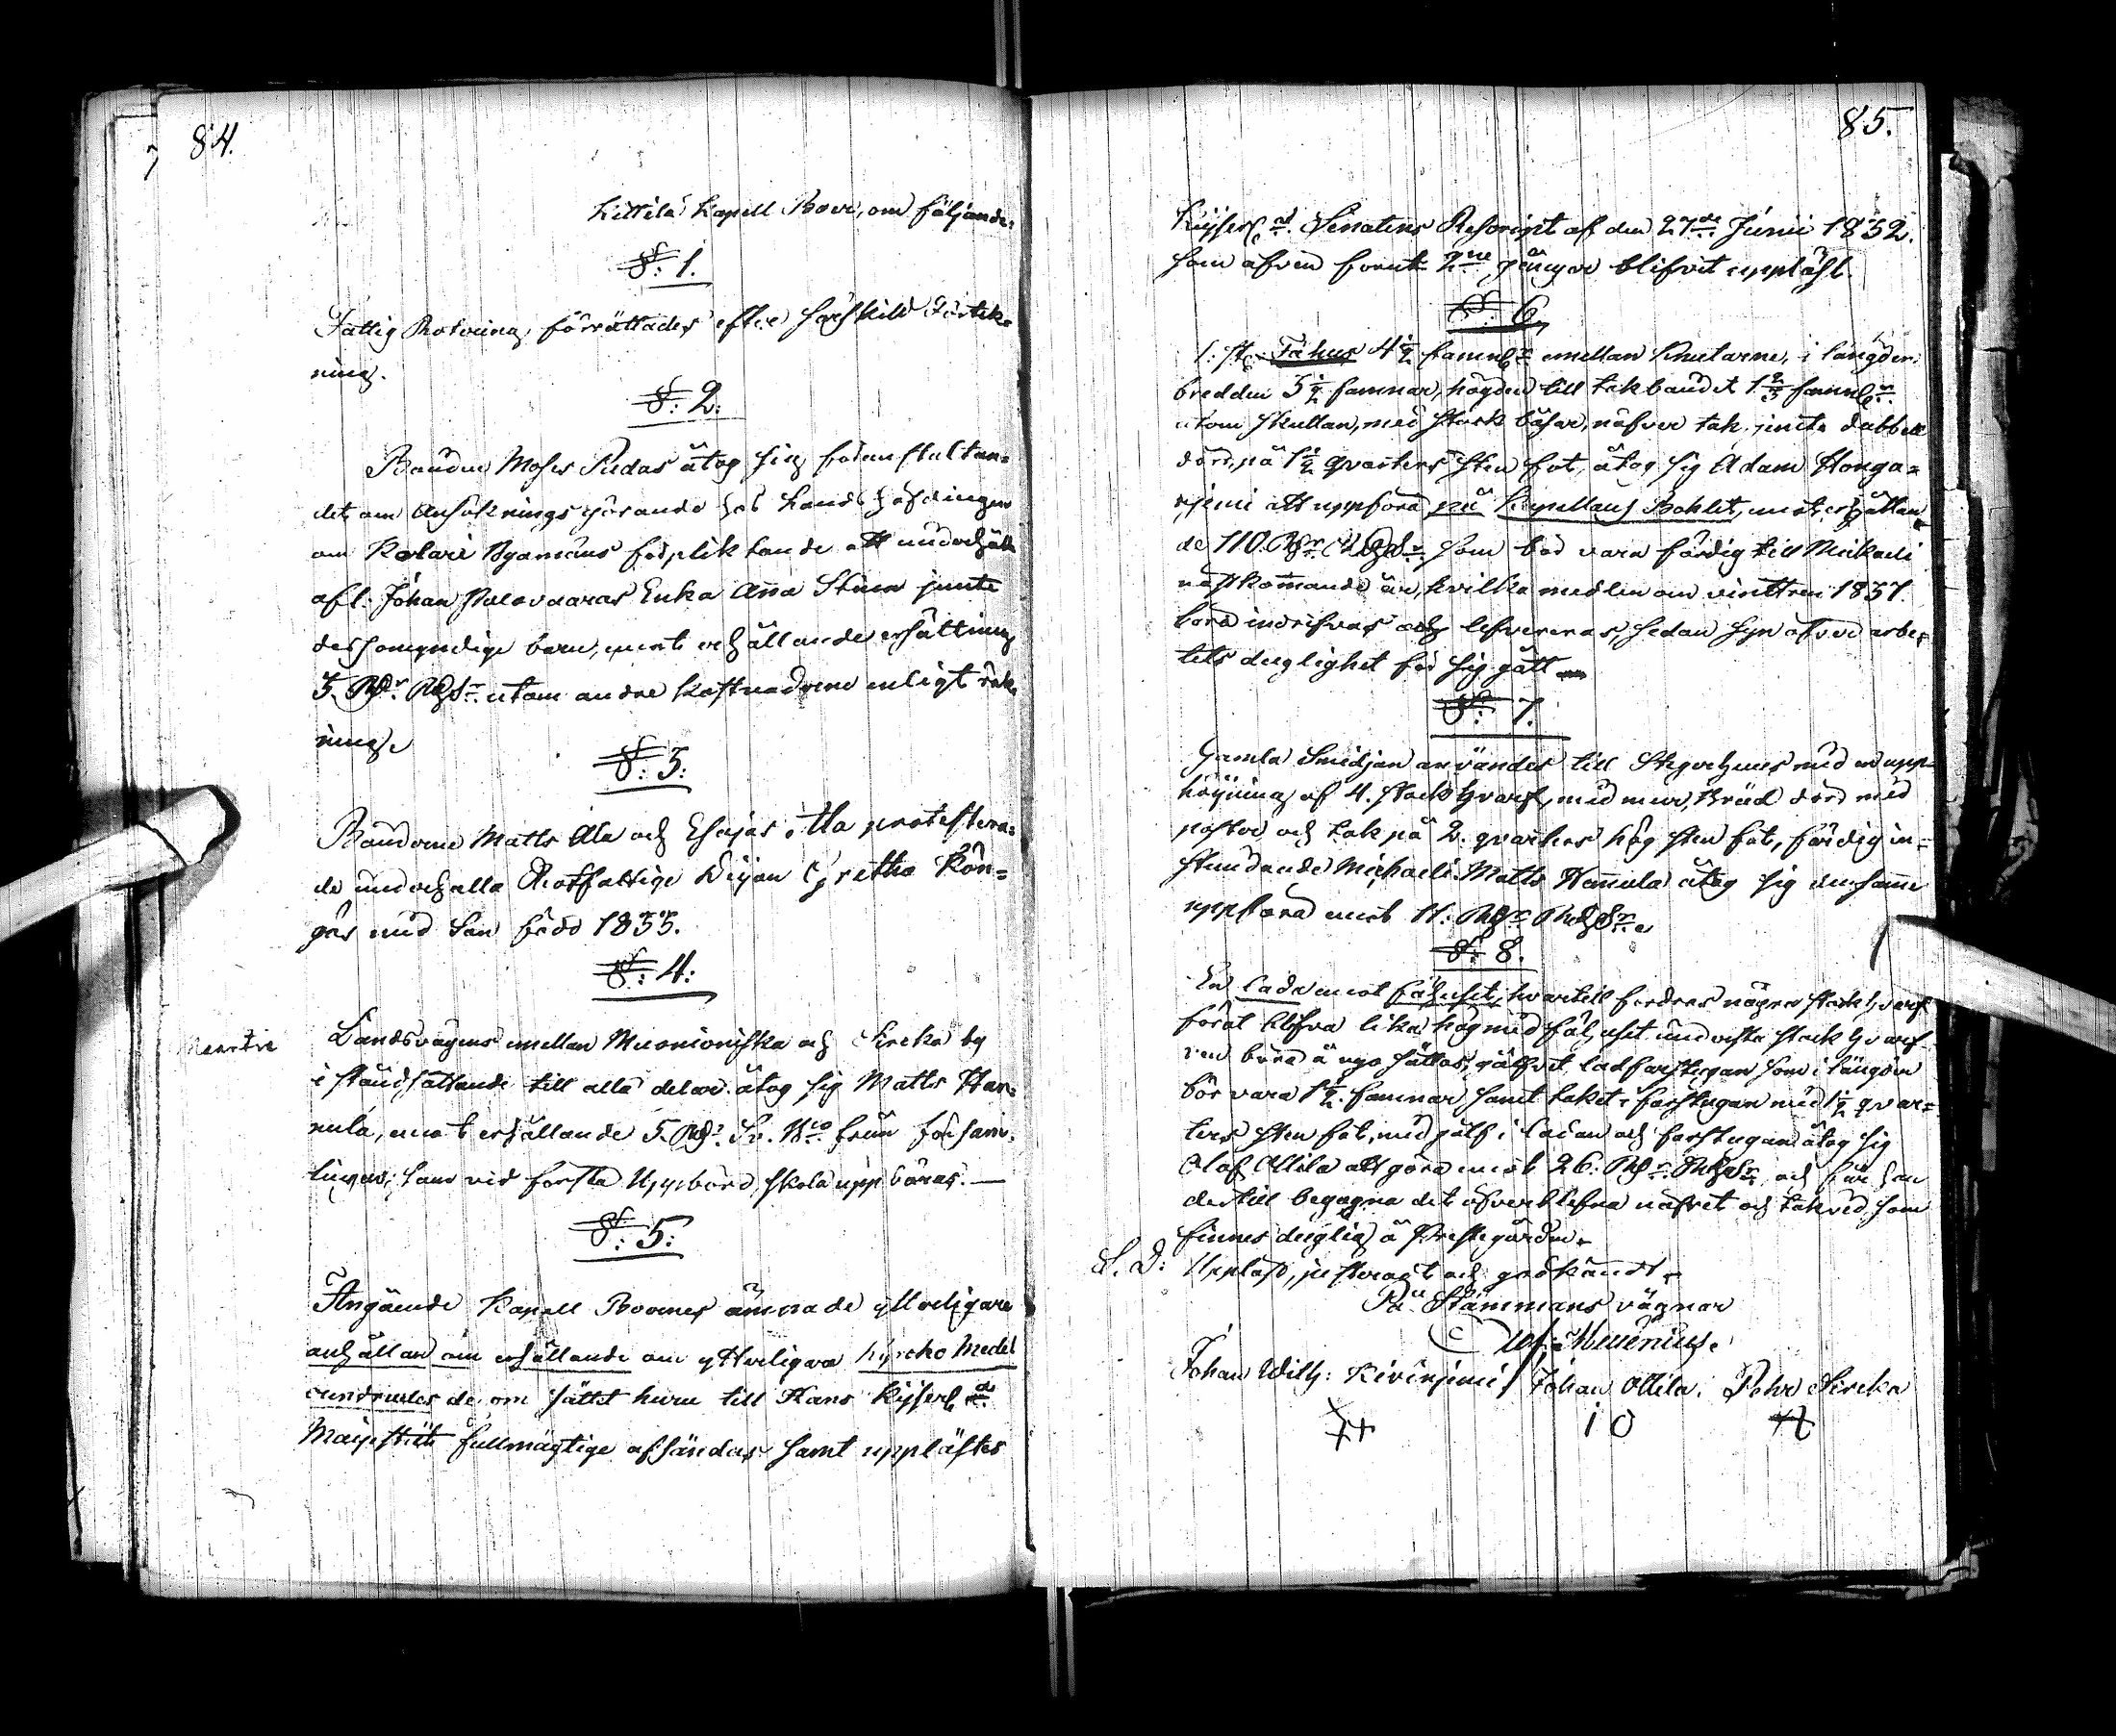 84.
Kittilä Kapell Boer, om följande:
§: 1.
Fattig Rotering, förrättades efter särskild Förtek-
ning.
§: 2:
Bonden Moses Pudas åtog sig föranstaltan-
det om Ansöknings görande hos Landshöfdingen
om Kolari Byamäns förpliktande att underhålla
afl. Johan Palovaaras Enka Anna Stina jemte
dess omyndige barn, emot erhållande ersättning
5 Rdr Rgds utom andre kostnaderne enligt räk-
ning.
§: 3:
Bönderne Matts Ala och Esajas Ala protestera-
de underhålla Rotfattige Pigan Gretha Kön-
gäs med Son född 1833.
§: 4:
Landsvägens emellan Muonioniska och Sirkka by
i ståndsättande till alla delar åtog sig Matts Han-
nula, emot erhållande 5. Rdr Sr. Bco från försam-
lingen; som vid första Uppbörd skola uppbäras. —
§: 5:
Angående Kapell Boernes ämnade ytterligare
anhållan om erhållande om ytterligare Kyrcko Medel
om sättet huru till Hans Kejserl.
Majestät fullmägtige afsändas samt upplästes
85.
Kejserl. Senatens Rescript af den 27de Junii 1832.
som äfven förut 2ne gånger blifvit uppläst.
§: 6
1: st. Fähus 4½ famnar emellan Knutarne, i längden:
bredden 3½ famnar, högden till takbandet 1⅔ famnar
utom skullan, med stock båsar, näfver tak, jemte dubbell
dörr, på 1½ qvarters sten fot, åtog sig Adam Honga-
niemi att uppföra på Kapellans Bohlet, emot erhållan-
de 110. Rdr Rgds, som bör vara färdig till Mikaeli
nästkommande år, hvilka medlen om vinttren 1837.
böra indrifvas och lefvereras, sedan syn öfver arbe-
tets duglighet för sig gått —
§: 7.
Gamla Smidjan användes till Slygtehus med en upp-
höjning af 4. stock hvarf, med mur, Bräd dörr med
poster och tak på 2. qvarters hög sten fot, färdig in-
stundande Michaeli. Matts Hannula åtog sig densamma
uppföra emot 11. Rdr Rgds.
§: 8.
En Lada emot fähuset, hvartill fordras några stock hvarf
förat blifva lika hög med fähuset understa stock hvarf-
ven böra å nyo sättas, gålfvet, ladfarstugan som i längden
bör vara 1½ famnar samt taket: farstugan med 1½ qvar-
ters sten fot, med gålf i ladan och farstugan åtog sig
Olof Ollila att göra emot 26. Rdr. Rgds, och får han
dertill begagna det öfverblefna näfret och takved, som
finnes duglig å Prestegården.
S. D: Uppläst, justeradt och godkändt.
På Stämmans vägnar
Johan Wilh: Kivinjemi, Johan Ollila. Pehr Sirckа